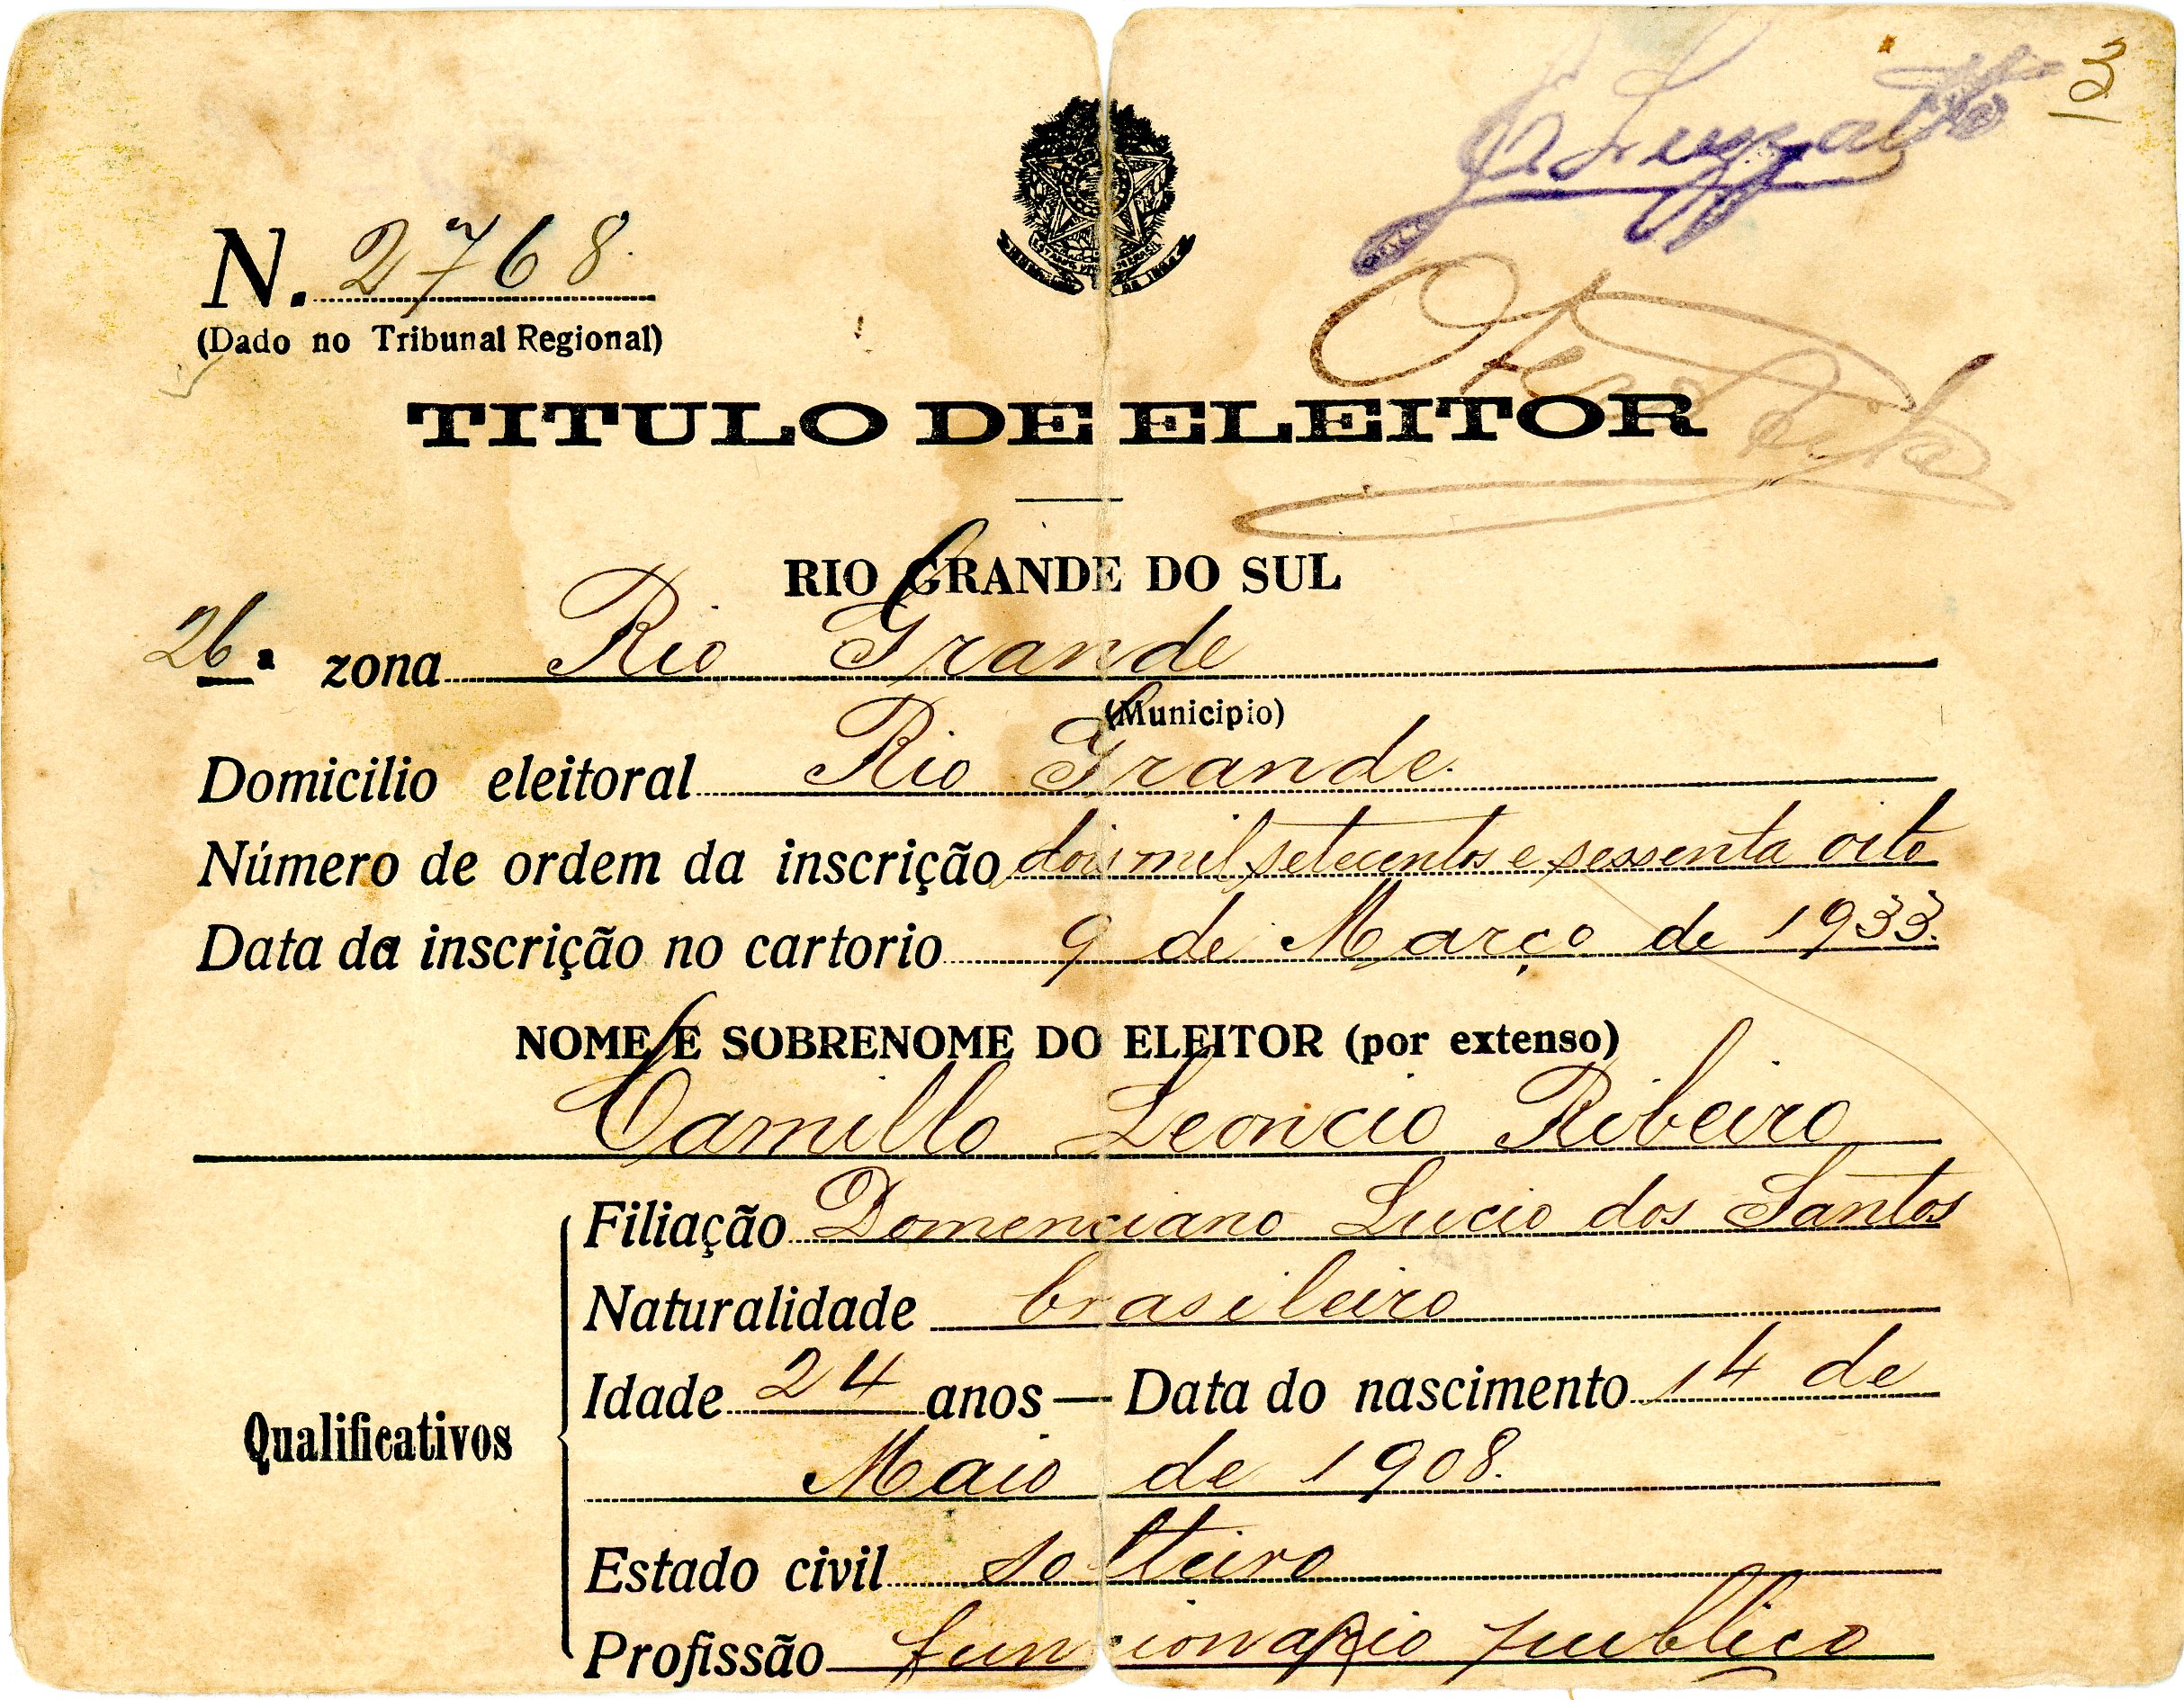 3
N. 2768.
(Dado no Tribunal Regional)
TITULO DE ELEITOR
RIO GRANDE DO SUL
26.ª zona Rio Grande
(Municipio)
Domicilio eleitoral Rio Grande.
Número de ordem da inscrição dois mil setecentos e sessenta oito
Data da inscrição no cartorio 9 de Março de 1933.
NOME E SOBRENOME DO ELEITOR (por extenso)
Camillo Leoncio Ribeiro
Filiação Domenciano Lucio dos Santos
Naturalidade brasileiro
Idade 24 anos — Data do nascimento 14 de
Qualificativos
Maio de 1908.
Estado civil solteiro
Profissão funcionario publico